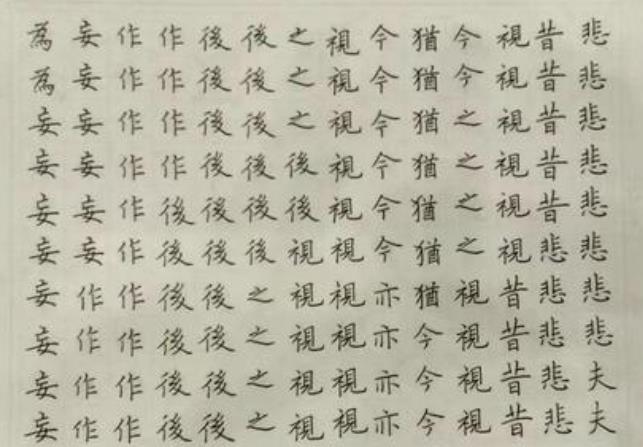 悲悲悲悲悲悲悲悲夫夫
昔昔昔昔昔悲悲悲悲悲
視視視視視視昔昔昔昔
今今之之之之視視視視
猶猶猶猶猶猶猶今今今
今今今今今今亦亦亦亦
視視視視視視視視視視
之之之後後視視視視視
後後後後後後之之之之
後後後後後後後後後後
作作作作後後後後後後
作作作作作作作作作作
妄妄妄妄妄妄作作作作
為為妄妄妄妄妄妄妄妄